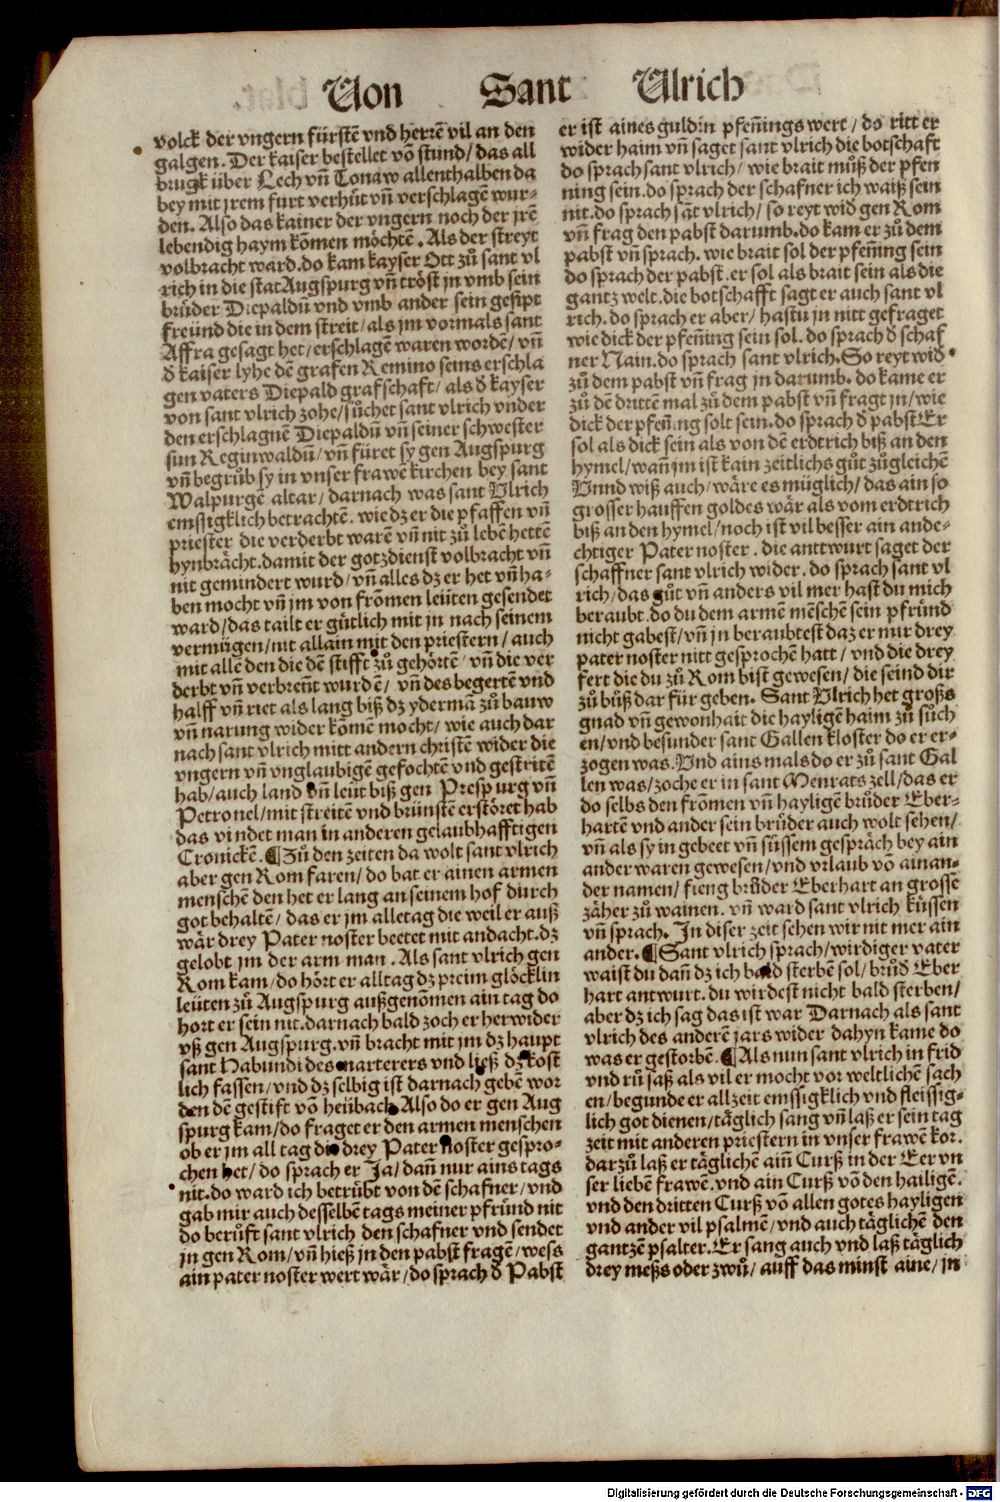 Von Sant Ulrich
volck der vngern fürstē vnd herrē vil an den
galgen. Der kaiser bestellet vō stund/ das all
brugk über Lech vñ Tonaw allenthalben da
bey mit jrem furt verhůt vñ verschlagē wur⸗
den. Also das kainer der vngern noch der jrē
lebendig haym kōmen möchtē. Als der streyt
volbracht ward. do kam kayser Ott zů sant vl
rich in die stat Augspurg vñ tröst jn vmb sein
brüder Diepaldū vnd vmb ander sein gesipt
freünd die in dem streit/ als jm vormals sant
Affra gesagt het/ erschlagē waren wordē/ vñ
d̄ kaiser lyhe dē grafen Remino seins erschla
gen vaters Diepald grafschaft/ als d̄ kayser
von sant vlrich zohe/ sůchet sant vlrich vnder
den erschlagnē Diepaldū vñ seiner schwester
sun Reginwaldū/ vñ füret sy gen Augspurg
vñ begrůb sy in vnser frawē kirchen bey sant
Walpurgē altar/ darnach was sant Vlrich
emssigklich betrachtē. wie dz er die pfaffen vñ
priester die verderbt warē vñ nit zů lebē hettē
hynbrächt. damit der gotzdienst volbracht vñ
nit gemindert wurd/ vñ alles dz er het vñ ha⸗
ben mocht vñ jm von frōmen leüten gesendet
ward/ das tailt er gůtlich mit jn nach seinem
vermügen/ nit allain mit den priestern/ auch
mit allē den die dē stifft zů gehörtē/ vñ die ver
derbt vñ verbreñt wurdē/ vñ des begertē vnd
halff vñ riet als lang biß dz ydermā zů bauw
vñ narung wider kōmē mocht/ wie auch dar
nach sant vlrich mitt andern christē wider die
vngern vñ vnglaubigē gefochtē vnd gestritē
hab/ auch land vñ leüt biß gen Prespurg vñ
Petronel/ mit streitē vnd brünstē erstöret hab
das vindet man in anderen gelaubhafftigen
Cronickē. ¶ Zů den zeiten da wolt sant vlrich
aber gen Rom faren/ do bat er ainen armen
menschē den het er lang an seinem hof durch
got behaltē/ das er jm alle tag die weil er auß
wär drey Pater noster beetet mit andacht. dz
gelobt jm der arm man. Als sant vlrich gen
Rom kam/ do hört er all tag dz preim glöcklin
leüten zů Augspurg außgenōmen ain tag do
hort er sein nit. darnach bald zoch er herwider
vß gen Augspurg. vñ bracht mit jm dz haupt
sant Habundi des marterers vnd ließ dz kost
lich fassen/ vnd dz selbig ist darnach gebē wor
den dē gestift vō heübach. Also do er gen Aug
spurg kam/ do fraget er den armen menschen
ob er jm all tag die drey Pater noster gespro⸗
chen het/ do sprach er Ja/ dañ nur ains tags
nit. do ward ich betrübt von dē schafner/ vnd
gab mir auch desselbē tags meiner pfründ nit
do berůft sant vlrich den schafner vnd sendet
jn gen Rom/ vñ hieß jn den pabst fragē/ wess
ain pater noster wert wär/ do sprach d̄ Pabst
er ist aines guldin pfeñings wert/ do ritt er
wider haim vñ saget sant vlrich die botschaft
do sprach sant vlrich/ wie brait můß der pfen
ning sein. do sprach der schafner ich waiß sein
nit. do sprach sāt vlrich/ so reyt wid̄ gen Rom
vñ frag den pabst darumb. do kam er zů dem
pabst vñ sprach. wie brait sol der pfeñing sein
do sprach der pabst. er sol als brait sein als die
gantz welt. die botschafft sagt er auch sant vl
rich. do sprach er aber/ hastu jn nitt gefraget
wie dick der pfeñing sein sol. do sprach d̄ schaf
ner Nain. do sprach sant vlrich. So reyt wid̄
zů dem pabst vñ frag jn darumb. do kame er
zů dē drittē mal zů dem pabst vñ fragt jn/ wie
dick der pfeñing solt sein. do sprach d̄ pabst Er
sol als dick sein als von dē erdtrich biß an den
hymel/ wañ jm ist kain zeitlichs gůt zůgleichē
Vnnd wiß auch/ wäre es müglich/ das ain so
grosser hauffen goldes wär als vom erdtrich
biß an den hymel/ noch ist vil besser ain ande⸗
chtiger Pater noster. die anttwurt saget der
schaffner sant vlrich wider. do sprach sant vl
rich/ das gůt vñ anders vil mer hast du mich
beraubt. do du dem armē mēschē sein pfründ
nicht gabest/ vñ jn beraubtest daz er mir drey
pater noster nitt gesprochē hatt/ vnd die drey
fert die du zů Rom bist gewesen/ die seind dir
zů bůß dar für geben. Sant Vlrich het großs
gnad vñ gewonhait die hayligē haim zů sůch
en/ vnd besunder sant Gallen kloster do er er⸗
zogen was. Vnd ains mals do er zů sant Gal
len was/ zoche er in sant Menrats zell/ das er
do selbs den frōmen vñ hayligē brůder Eber⸗
hartē vnd ander sein brůder auch wolt sehen/
vñ als sy in gebeet vñ süssem gespräch bey ain
ander waren gewesen/ vnd vrlaub vō ainan⸗
der namen/ fieng brůder Eberhart an grossē
zäher zů wainen. vñ ward sant vlrich küssen
vñ sprach. Jn diser zeit sehen wir nit mer ain
ander. ¶ Sant vlrich sprach/ wirdiger vater
waist du dañ dz ich bald sterbē sol/ brůd̄ Eber
hart antwurt. du wirdest nicht bald sterben/
aber dz ich sag das ist war Darnach als sant
vlrich des anderē jars wider dahyn kame do
was er gestorbē. ¶ Als nun sant vlrich in frid
vnd rů saß als vil er mocht vor weltlichē sach
en/ begunde er allzeit emssigklich vnd fleissig⸗
lich got dienen/ täglich sang vñ laß er sein tag
zeit mit anderen priestern in vnser frawē kor.
darzů laß er täglichē aiñ Curß in der Eer vn
ser liebē frawē. vnd ain Curß vō den hailigē.
vnd den dritten Curß vō allen gotes hayligen
vnd ander vil psalmē/ vnd auch täglichē den
gantzē psalter. Er sang auch vnd laß täglich
drey meßs oder zwů/ auff das minst aine/ jn
Digitalisierung gefördert durch die Deutsche Forschungsgemeinschaft - DFG